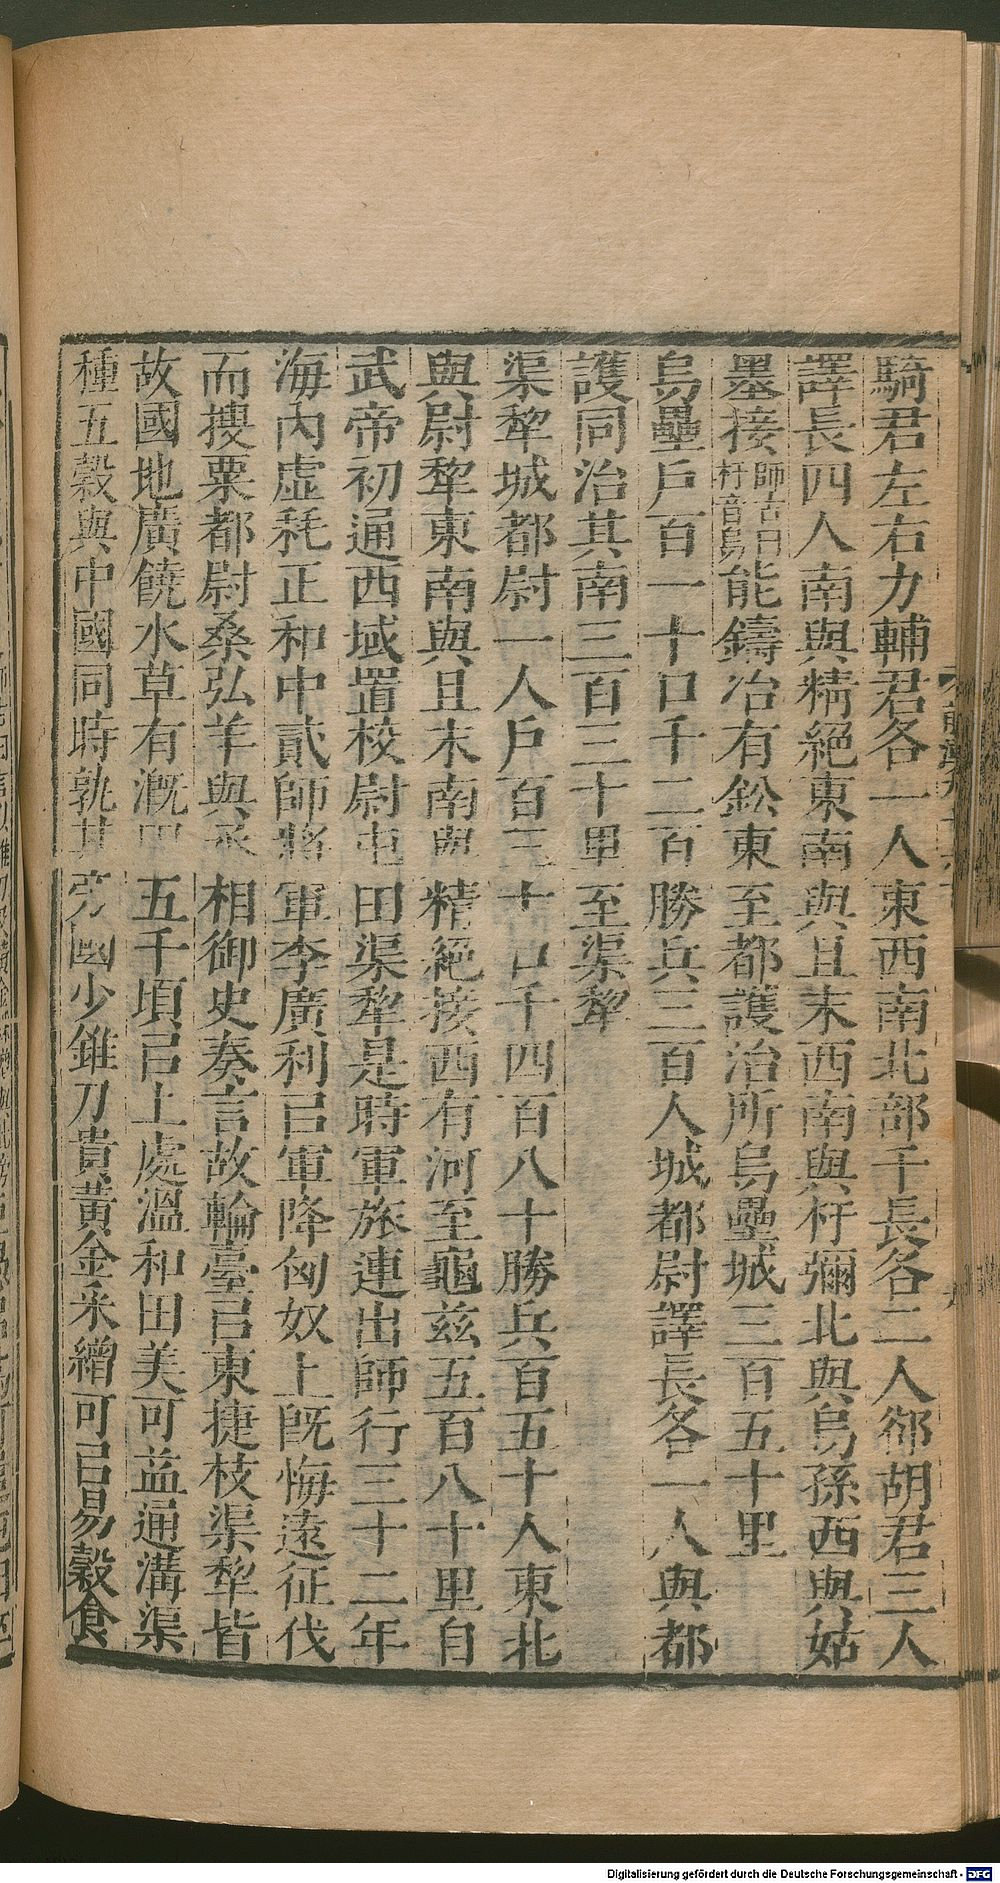 騎君左右力輔君各一人東西南北部千長各二人郤胡君三人
譯長四人南與精絕東南與且末西南與杅彌北與烏孫西與姑
墨接師古曰杅音烏能鑄冶有鈆東至都護治所烏壘城三百五十里
烏壘戶百一十口千二百勝兵三百人城都尉譯長各一人與都
護同治其南三百三十里至渠犂
渠犂城都尉一人戶百三十口千四百八十勝兵百五十人東北
與尉犂東南與且末南與精絕接西有河至龜茲五百八十里自
武帝初通西域置校尉屯田渠犂是時軍旅連出師行三十二年
海內虛秏正和中貳師將軍李廣利㠯軍降匈奴上旣悔遠征伐
而搜粟都尉桑弘羊與丞相御史奏言故輪臺㠯東捷枝渠犂皆
故國地廣饒水草有溉田五千頃㠯上處溫和田美可益通溝渠
種五穀與中國同時孰其旁國少錐刀貴黃金采繒可㠯易穀食
Digitalisierung gefördert durch die Deutsche Forschungsgemeinschaft - DFG